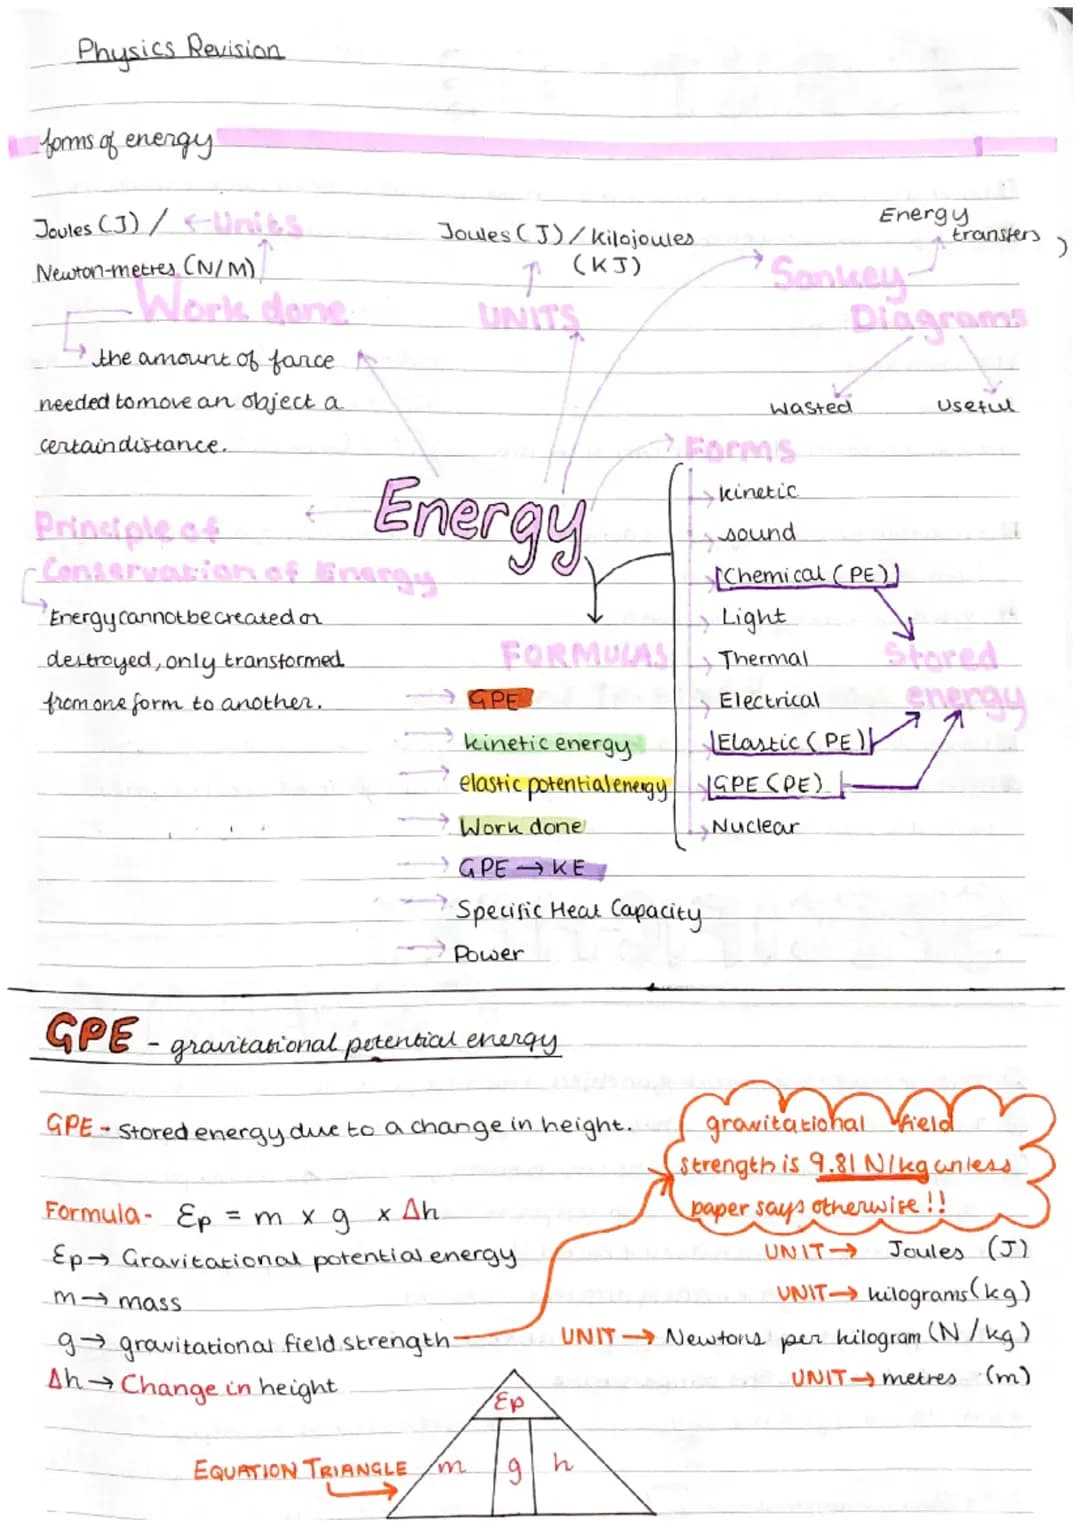 Physics Revision
forms of energy
Joules (J) / ← Units
Newton-metres (N/M)
Work done
the amount of force
needed to move an object a
certain distance.
Joules (J) / Kilojoules
(KJ)
UNITS
Energy
transfers
Sankey
Diagrams
Wasted
Useful
Energy
Principle of
Conservation of Energy
Energy cannot be created or
destroyed, only transformed
from one form to another.
Forms
kinetic
sound
[Chemical (PE)]
Light
Thermal
Electrical
[Elastic (PE)]
[GPE (PE)]
Nuclear
Stored
energy
FORMULAS
→ GPE
→ kinetic energy
→ elastic potential energy
→ Work done
→ GPE → KE
→ Specific Heat Capacity
→ Power
GPE - gravitational potential energy
GPE - Stored energy due to a change in height.
gravitational field
strength is 9.81 N/kg unless
paper says otherwise !!
Formula - Ep = m x g x Δh
Ep → Gravitational potential energy UNIT → Joules (J)
m → mass UNIT → kilograms (kg)
g → gravitational field strength UNIT → Newtons per kilogram (N/kg)
Δh → Change in height UNIT → metres (m)
Ep
EQUATION TRIANGLE m g h